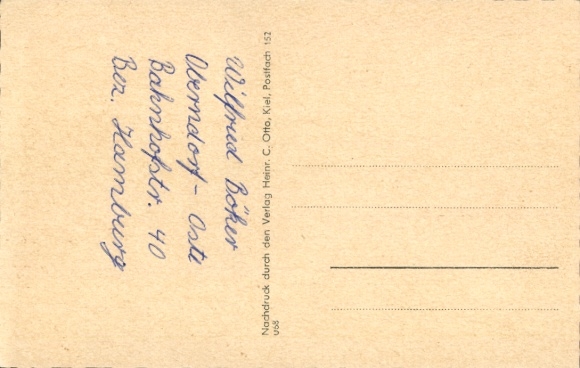 Wilfried Böker
Oberndorf - Oste
Bahnhofstr. 40
Bez. Hamburg
Nachdruck durch den Verlag Heinr. C. Otto, Kiel, Postfach 152
U68